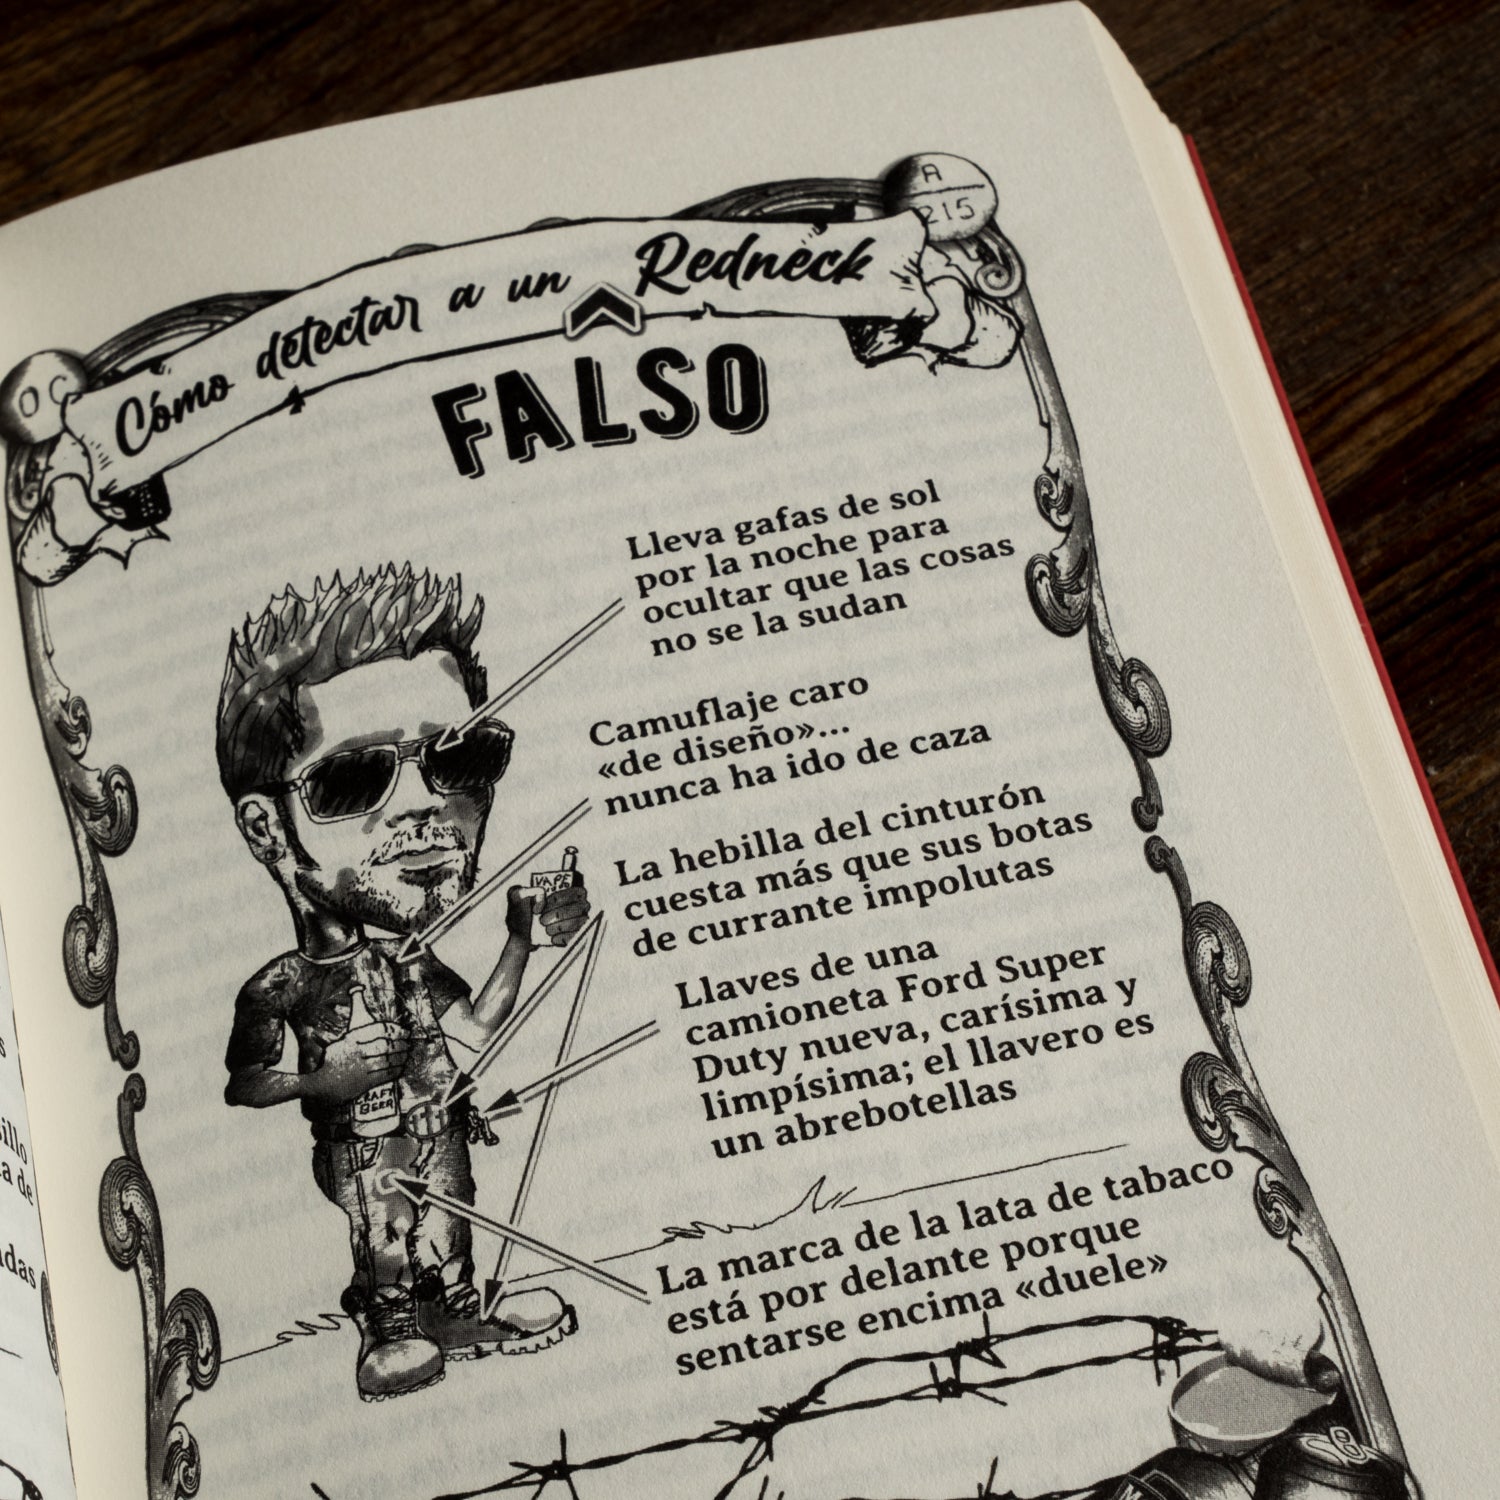 A
215
OC
Cómo detectar a un Redneck
FALSO
Lleva gafas de sol
por la noche para
ocultar que las cosas
no se la sudan
Camuflaje caro
«de diseño»...
nunca ha ido de caza
La hebilla del cinturón
cuesta más que sus botas
de currante impolutas
VAPE
Llaves de una
camioneta Ford Super
Duty nueva, carísima y
limpísima; el llavero es
un abrebotellas
CRAFT
BEER
La marca de la lata de tabaco
está por delante porque
sentarse encima «duele»